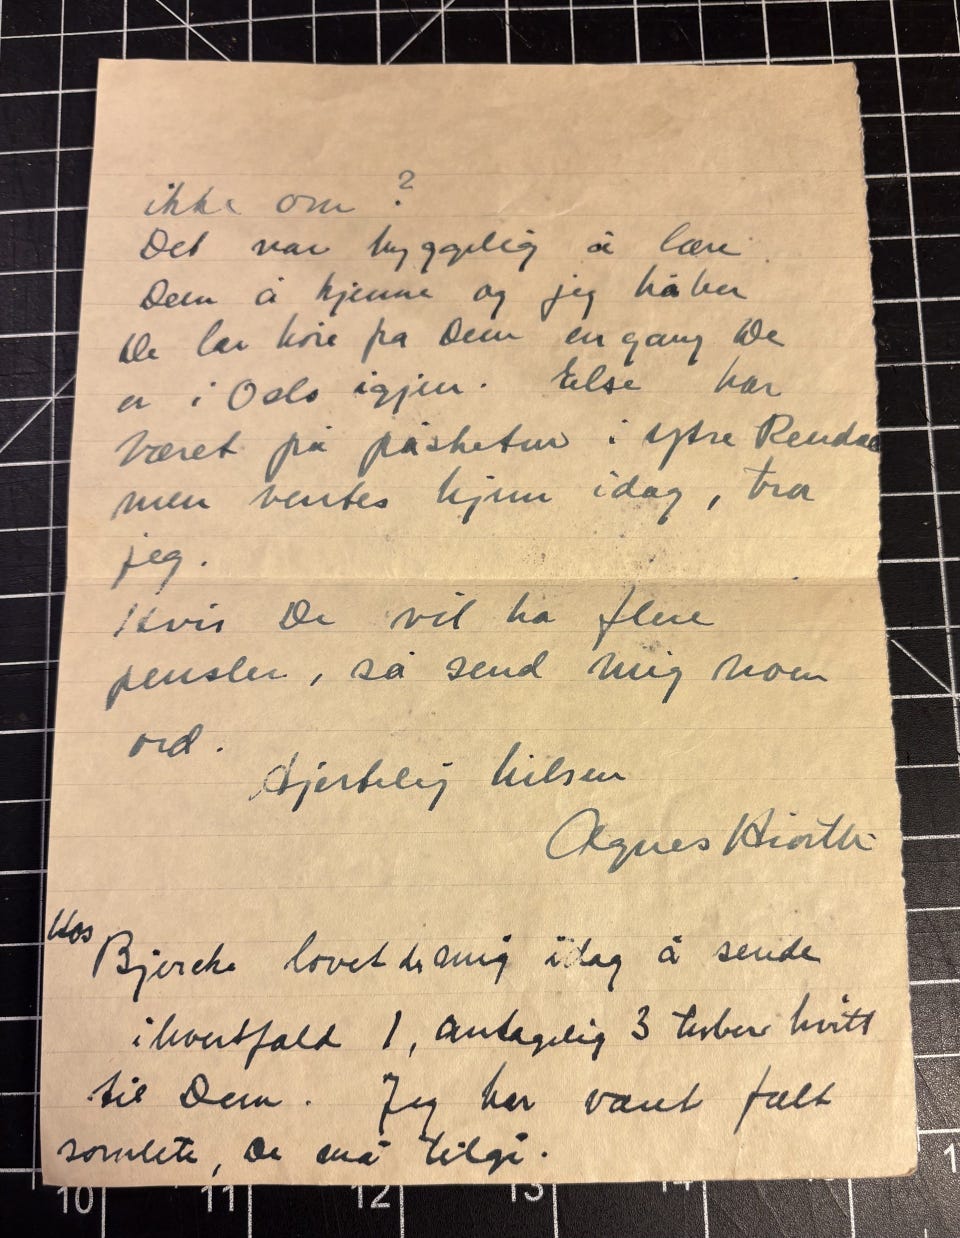 ikke om ?
Det var hyggelig å lære
Dem å kjenne og jeg håber
De lar høre fra Dem en gang De
er i Oslo igjen. Else har
været på påsketur i ytre Rendal
men ventes hjem idag, tror
jeg.
Hvis De vil ha flere
pensler, så send mig noen
ord.
Hjertelig hilsen
Agnes Hiorth
Hos
Bjercke lovet de mig idag å sende
ihvertfald 1, antagelig 3 tuber hvitt
til Dem. Jeg har været fælt
somlete, De må tilgi.
10 11 12 13 14 1